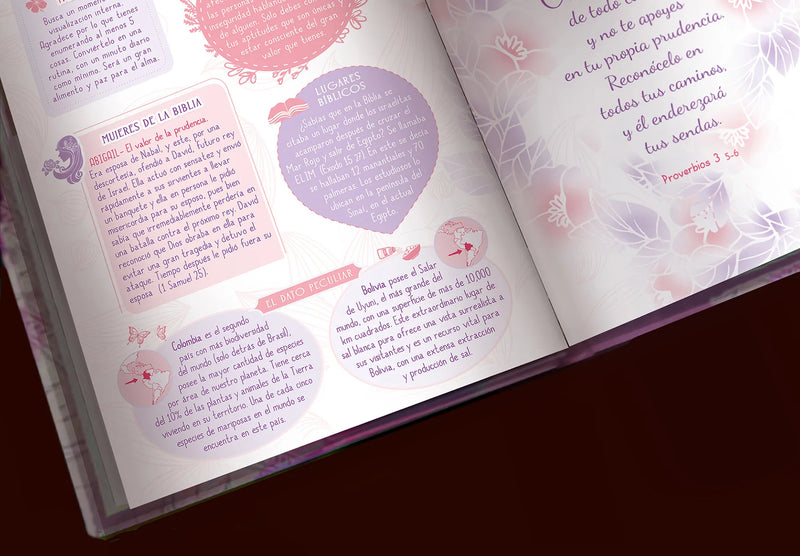 Busca un momento
visualización eterna.
Agradece por lo que tienes
enumerando al menos 5
cosas. Conviértelo en una
rutina, con un minuto diario
como mínimo. Será un gran
alimento y paz para el alma.
las personas
inseguridad hablando
de alguien. Solo debes
tus aptitudes que son
estar consciente del gran
valor que tienes.
MUJERES DE LA BIBLIA
ABIGAIL- El valor de la prudencia.
Era esposa de Nabal, y este, por una
descortería, ofendió a David, futuro rey
de Israel. Ella actuó con sensatez y envió
rápidamente a sus sirvientes a llevar
un banquete y ella en persona le pidió
misericordia para su esposo, pues bien
sabía que irremediablemente perdería en
una batalla contra el próximo rey. David
reconoció que Dios obraba en ella para
evitar una gran tragedia y detuvo el
ataque. Tiempo después le pidió fuera su
esposa (1 Samuel 25).
LUGARES
BÍBLICOS
¿Sabías que en la Biblia se
citaba un lugar donde los israelitas
acamparon después de cruzar el
Mar Rojo y salir de Egipto? Se llamaba
ELIM (Éxodo 15:27). En este se decía
se hallaban 12 manantiales y 70
palmeras. Los estudiosos lo
ubican en la península del
Sinaí, en el actual
Egipto.
EL DATO PECULIAR
Colombia es el segundo
país con más biodiversidad
del mundo (solo detrás de Brasil),
posee la mayor cantidad de especies
por área de nuestro planeta. Tiene cerca
del 10% de las plantas y animales de la Tierra
viviendo en su territorio. Una de cada cinco
especies de mariposas en el mundo se
encuentra en este país.
Bolivia posee el Salar
de Uyuni, el más grande del
mundo, con una superficie de más de 10,000
km cuadrados. Este extraordinario lugar de
sal blanca pura ofrece una vista surrealista a
sus visitantes y es un recurso vital para
Bolivia, con una extensa extracción
y producción de sal.
de todo
y no te apoyes
en tu propia prudencia.
Reconócelo en
todos tus caminos,
y él enderezará
tus sendas.
Proverbios 3 5-6